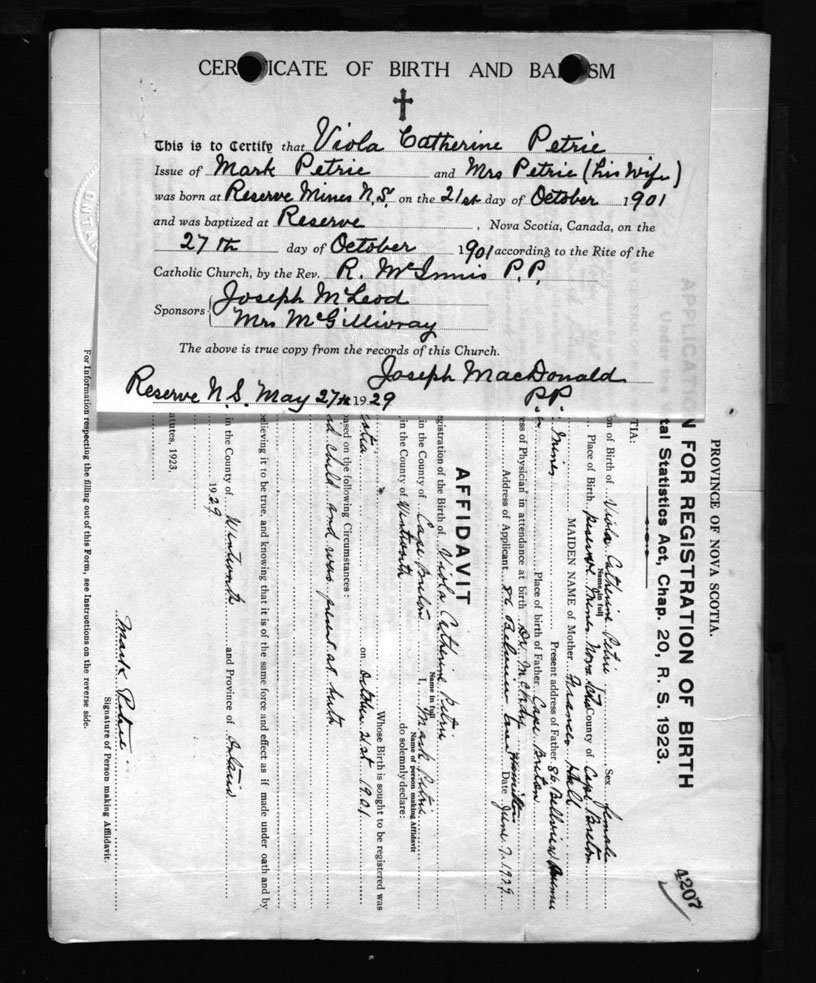 CER ICATE OF BIRTH AND BA SM
This is to Certify that Viola Catherine Petrie
Issue of Mark Petrie and Mrs Petrie (his wife)
was born at Reserve Mines N.S. on the 21st day of October 1901
and was baptized at Reserve , Nova Scotia, Canada, on the
27th day of October 1901 according to the Rite of the
Catholic Church, by the Rev. R. McInnis P.P.
Sponsors Joseph McLeod
Mrs McGillivray
The above is true copy from the records of this Church.
Joseph MacDonald
Reserve N.S. May 27th 1929 P.P.
PROVINCE OF NOVA SCOTIA.
N FOR REGISTRATION OF BIRTH
tal Statistics Act, Chap. 20, R. S. 1923.
4207
TIA:
on of Birth of Viola Catherine Petrie Sex female
Name in full
Place of Birth Reserve Mines Nova Scotia County of Cape Breton
MAIDEN NAME of Mother Frances Hall
Mines Present address of Father 86 Bellview Avenue
Place of birth of Father Cape Breton
ess of Physician in attendance at birth Dr. McKay
Address of Applicant 86 Belview Ave Hamilton Date June 7. 1929
AFFIDAVIT
gistration of the Birth of Viola Catherine Petrie
Name in full
in the County of Cape Breton I, Mark Petrie
Name of person making Affidavit
in the County of Wentworth do solemnly declare:
Whose Birth is sought to be registered was
otia on October 21st 1901
ased on the following Circumstances:
nd child and was present at birth
elieving it to be true, and knowing that it is of the same force and effect as if made under oath and by
in the County of Wentworth and Province of Ontario
1929
atutes, 1923.
Mark Petrie
Signature of Person making Affidavit.
For Information respecting the filling out of this Form, see Instructions on the reverse side.